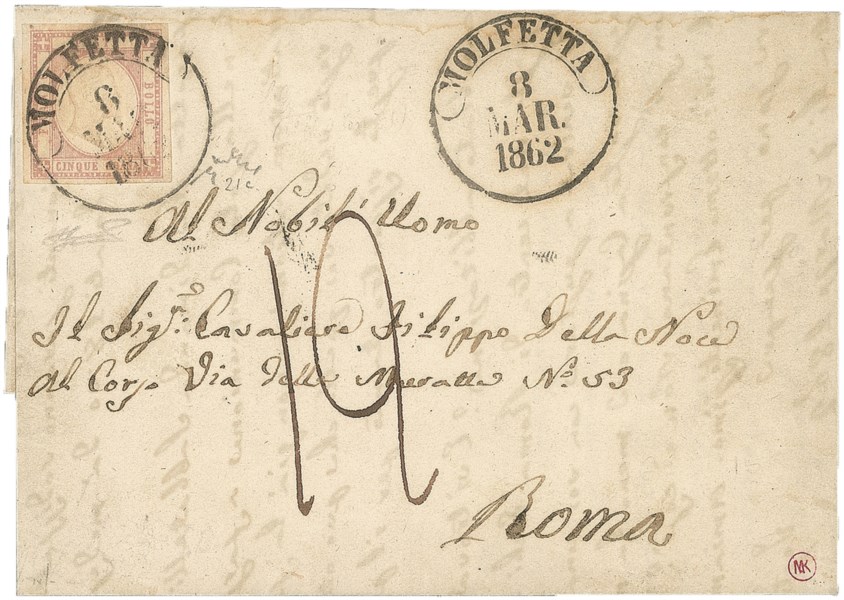 MOLFETTA
8
MAR.
1862
MOLFETTA
8
BOLLO
CINQUE
21c.
Al Nobil' Uomo
19
Il Sig.re Cavaliere Filippo Della Noce
Al Corso Via delle Muratte N.o 53
Roma
MK